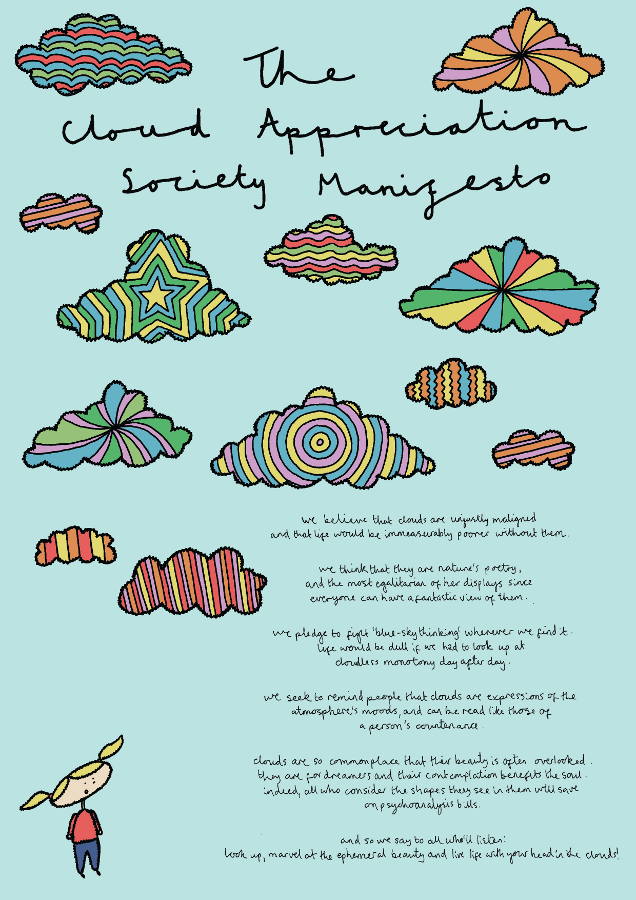 The
Cloud Appreciation
Society Manifesto
we believe that clouds are unjustly maligned
and that life would be immeasurably poorer without them.
we think that they are nature's poetry,
and the most egalitarian of her displays since
everyone can have a fantastic view of them.
we pledge to fight 'blue-sky thinking' wherever we find it.
life would be dull if we had to look up at
cloudless monotony day after day.
we seek to remind people that clouds are expressions of the
atmosphere's moods, and can be read like those of
a person's countenance.
clouds are so commonplace that their beauty is often overlooked.
they are for dreamers and their contemplation benefits the soul.
indeed, all who consider the shapes they see in them will save
on psychoanalysis bills.
and so we say to all who'll listen:
look up, marvel at the ephemeral beauty and live life with your head in the clouds!